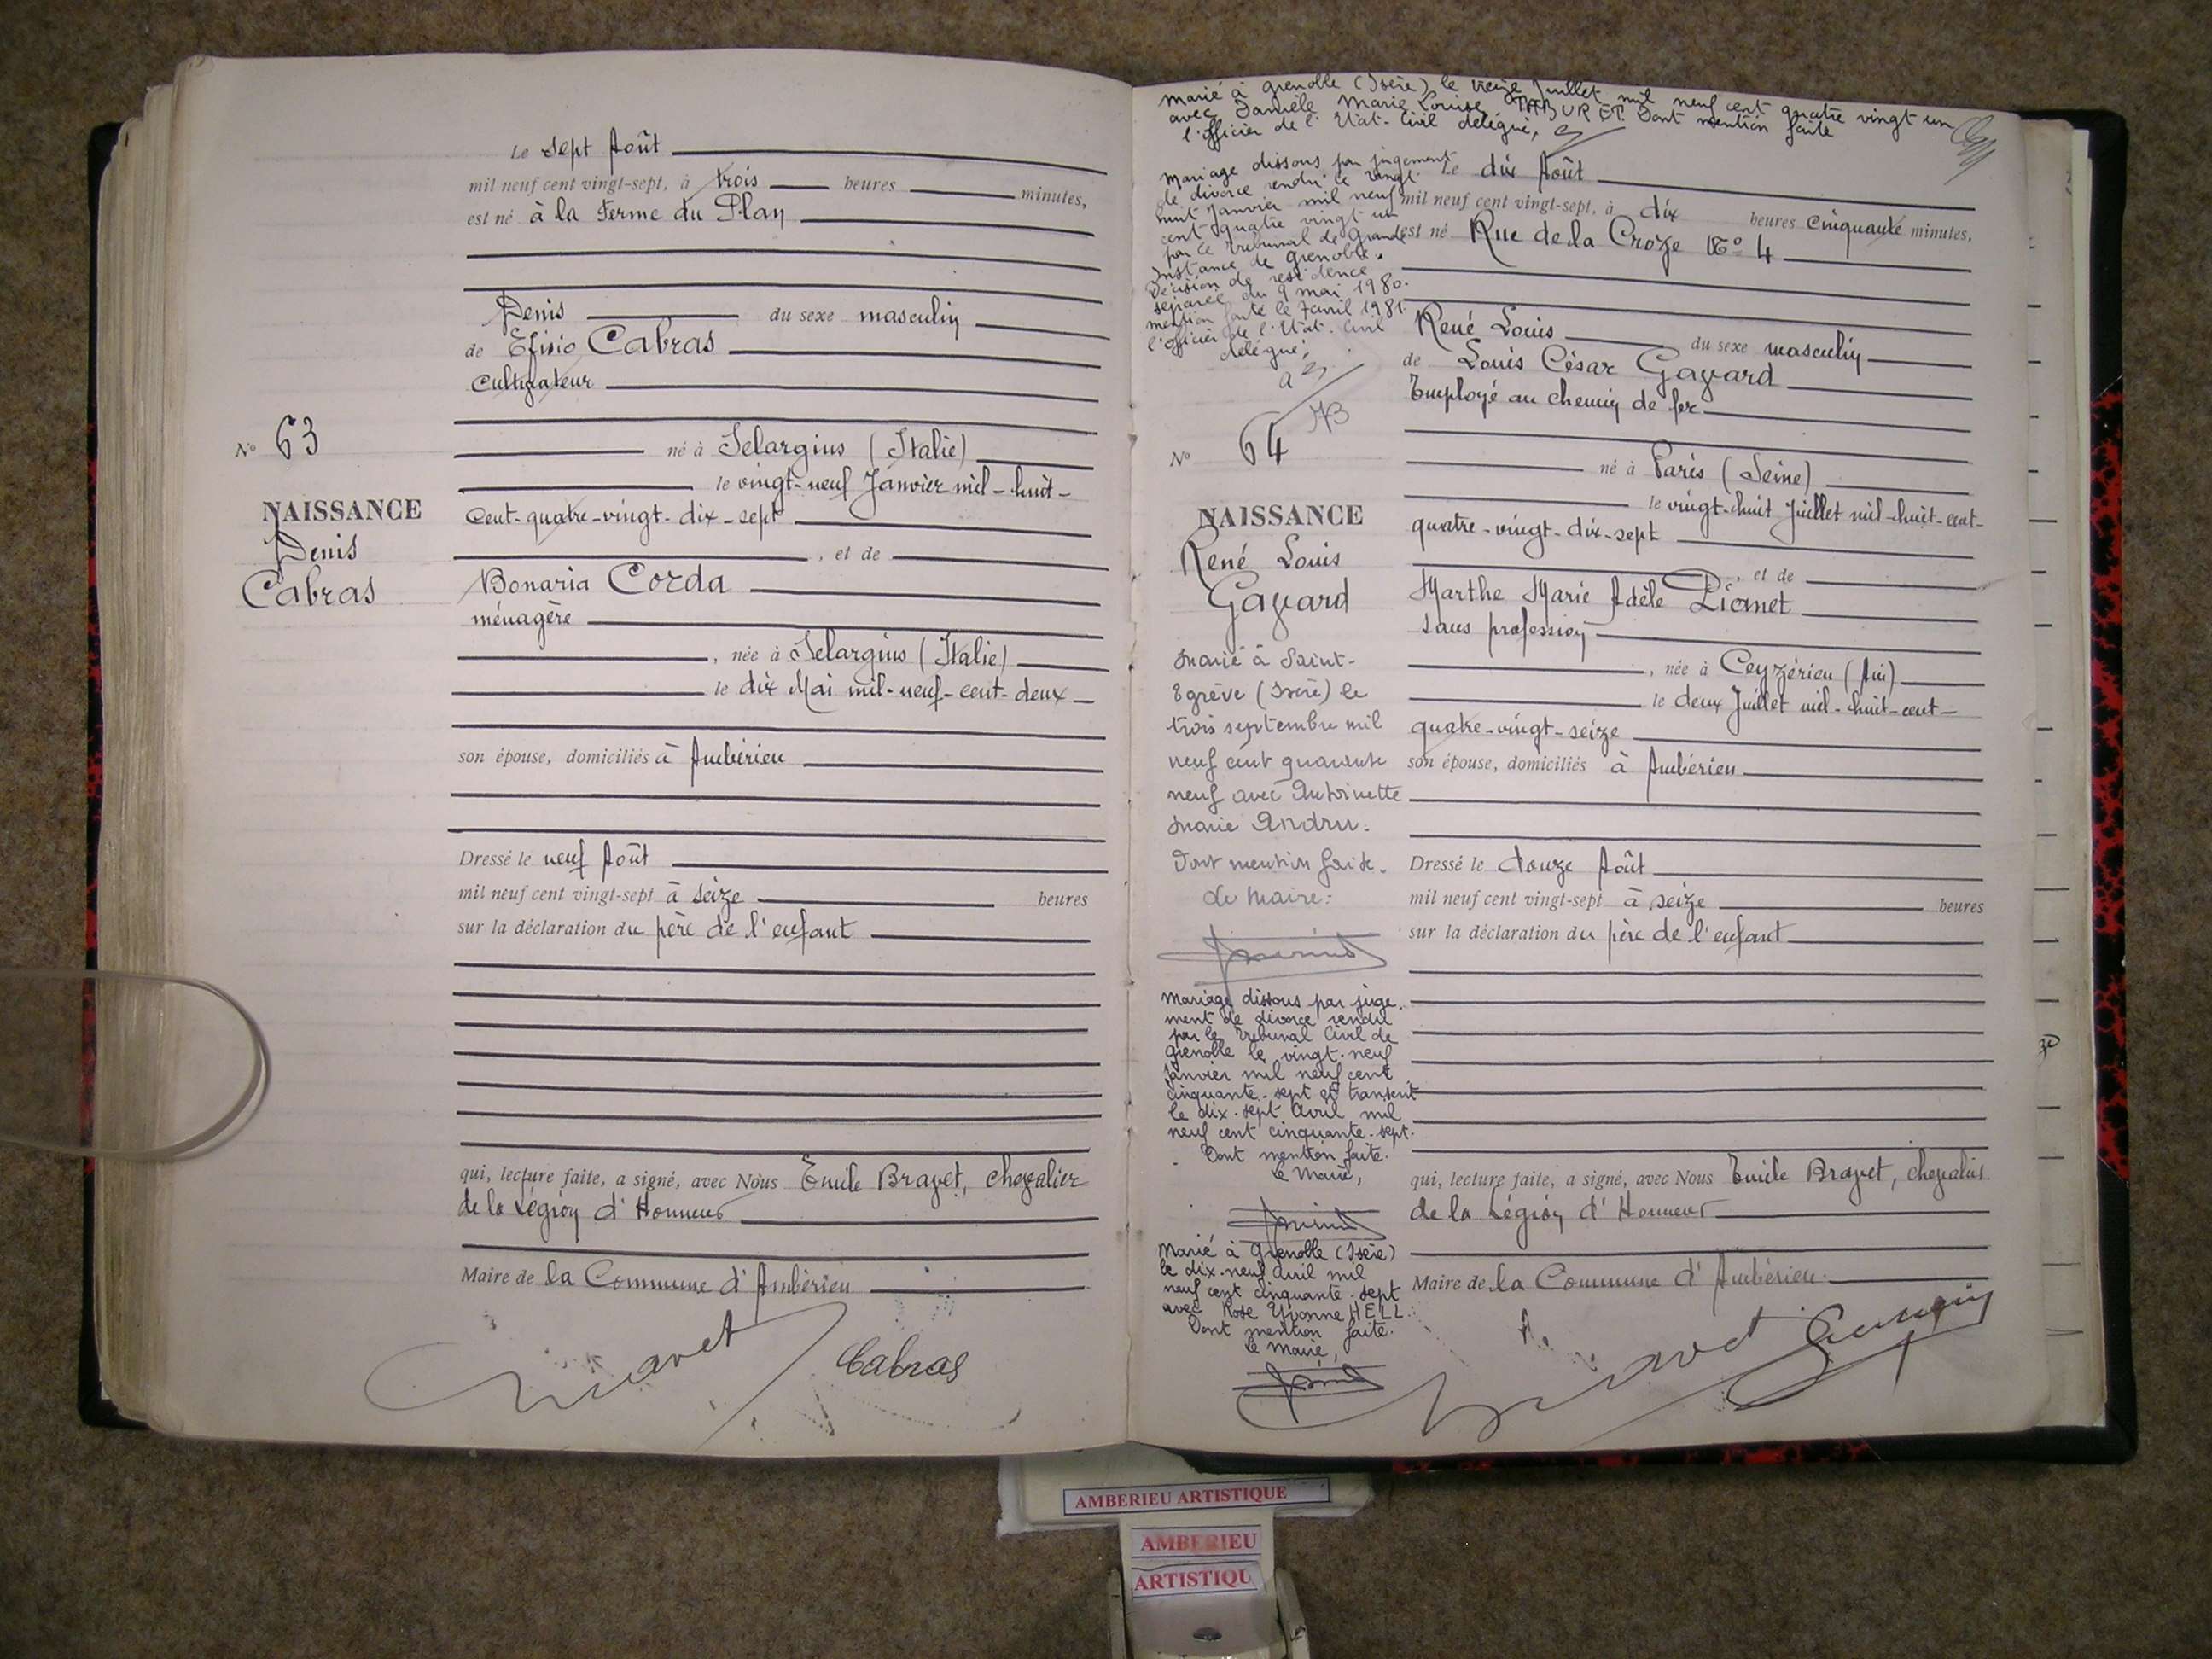 Le sept Août
mil neuf cent vingt-sept, à trois heures minutes,
est né à la Ferme du Plan
Denis du sexe masculin
de Efisio Cabras
Cultivateur
né à Selargius (Italie)
le vingt-neuf Janvier mil-huit-
cent-quatre-vingt-dix-sept
, et de
Bonaria Corda
ménagère
, née à Selargius (Italie)
le dix Mai mil-neuf-cent-deux
son épouse, domiciliés à Ambérieu
Dressé le neuf Août
mil neuf cent vingt-sept à seize heures
sur la déclaration du père de l'enfant
qui, lecture faite, a signé, avec Nous Emile Bravet, chevalier
de la Légion d'Honneur
Maire de la Commune d'Ambérieu
Bravet
Cabras
No 63
NAISSANCE
Denis
Cabras
Marié à Grenoble (Isère) le treize Juillet mil neuf cent quatre vingt un
avec Danièle Marie Louise TABURET. Dont mention faite
l'officier de l'Etat-Civil délégué,
Mariage dissous par jugement
de divorce rendu le vingt
huit Janvier mil neuf
cent quatre vingt un
par le Tribunal de Grande
Instance de Grenoble.
Décision de résidence
séparée du 9 mai 1980.
mention faite le 7 avril 1981.
l'officier de l'Etat-Civil
délégué,
No 64
NAISSANCE
René Louis
Gavard
Marié à Saint-
Egrève (Isère) le
trois septembre mil
neuf cent quarante
neuf avec Antoinette
Marie Andru.
Dont mention faite.
Le Maire:
Mariage dissous par juge-
ment de divorce rendu
par le Tribunal Civil de
Grenoble le vingt-neuf
Janvier mil neuf cent
cinquante-sept et transcrit
le dix-sept Avril mil
neuf cent cinquante-sept.
Dont mention faite.
Le Maire,
Marié à Grenoble (Isère)
le dix-neuf Avril mil
neuf cent cinquante-sept
avec Rose Yvonne HELL.
Dont mention faite.
Le Maire,
Le dix Août
mil neuf cent vingt-sept, à dix heures cinquante minutes,
est né Rue de la Croze No 4
René Louis du sexe masculin
de Louis César Gavard
Employé au chemin de fer
né à Paris (Seine)
le vingt-huit Juillet mil-huit-cent-
quatre-vingt-dix-sept
, et de
Marthe Marie Adèle Pianet
sans profession
, née à Ceyzérieu (Ain)
le deux Juillet mil-huit-cent-
quatre-vingt-seize
son épouse, domiciliés à Ambérieu
Dressé le douze Août
mil neuf cent vingt-sept à seize heures
sur la déclaration du père de l'enfant
qui, lecture faite, a signé, avec Nous Emile Bravet, chevalier
de la Légion d'Honneur
Maire de la Commune d'Ambérieu
Bravet
AMBERIEU ARTISTIQUE
AMBERIEU
ARTISTIQU